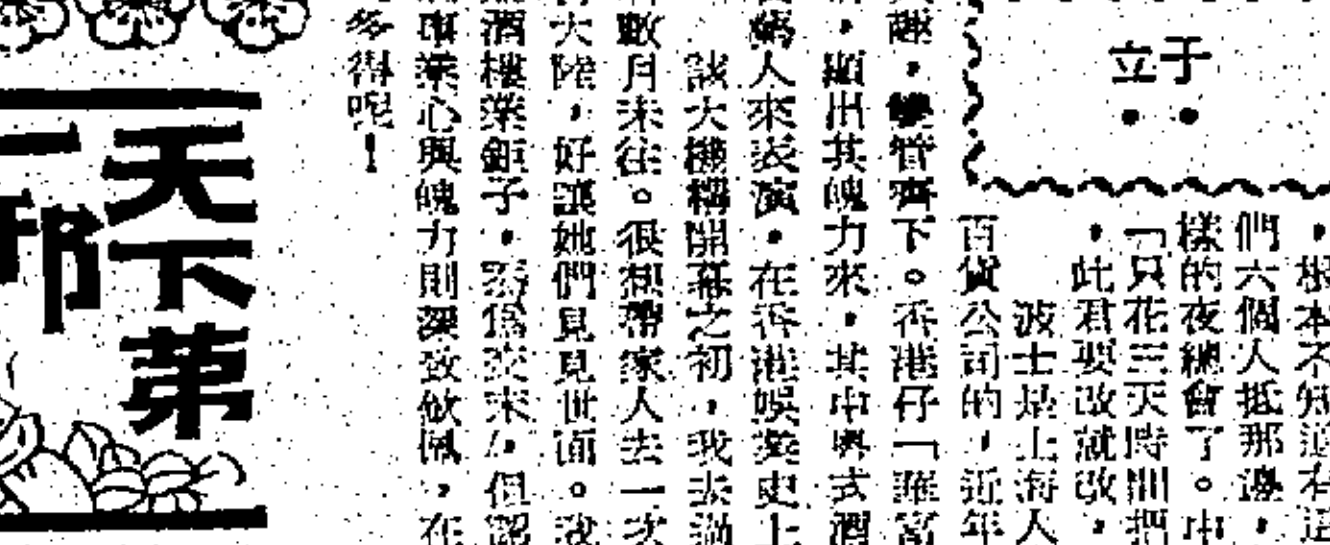 子立
，根本不知道有這
們六個人抵那邊，
樣的夜總會了。中
「只花三天時間把
，此君要改就改，
波士是上海人
百貨公司的，近年
趣，雙管齊下。香港仔「羅富
，顯出其魄力來，其中粵式酒
人來表演，在香港娛樂史上
該大機構開幕之初，我去過
數月未往。很想帶家人去一次
大陸，好讓她們見見世面。我
酒樓業鉅子，忝為交末，但認
事業心與魄力則深致欽佩，在
多得呢！
天下第
一邪